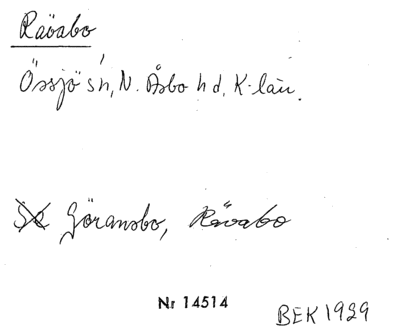 Rävabo
Össjö sn, N. Åsbo hd, K-län.
Göransbo, Rävabo
Nr 14514
BEK 1929